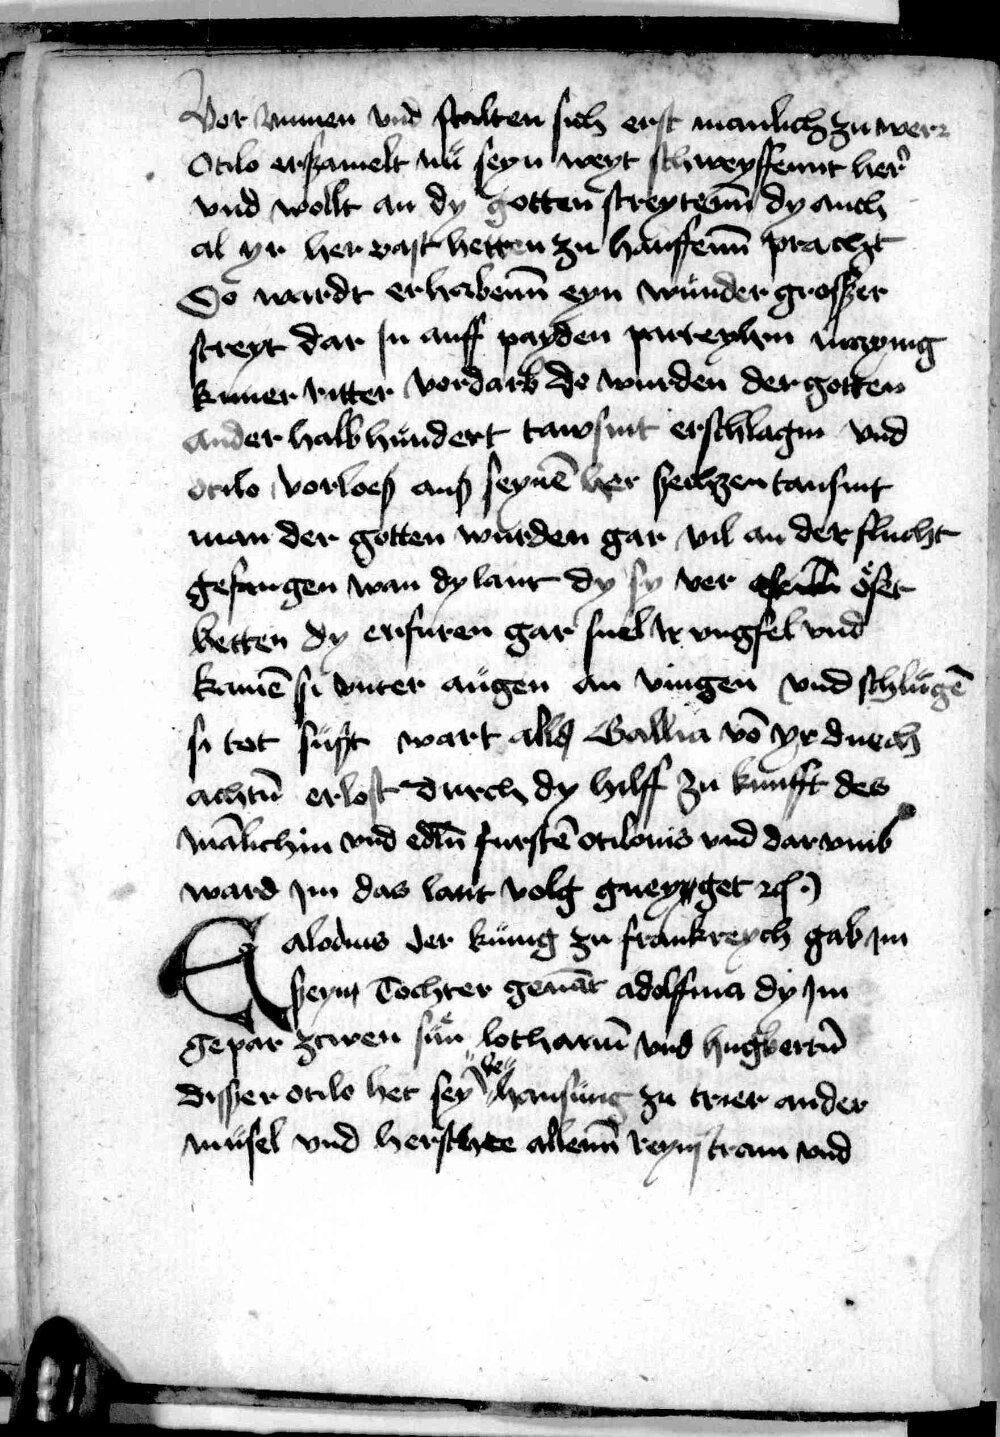 Vor ynnen vnd stalten sich erst manlich zu wer
Otilo erszamelt nu seyn weyt schweyffennt her
vnd wollt an dy gotten streytenn dy auch
al yr her vast hetten zu hauffenn pracht
Do wardt erhabenn eyn wunder grosszer
streyt dar Jn auff payden parteyhen manig
kuner ritter vordarb do wurden der gotten
ander halb hundert tawsint erschlagin vnd
otilo vorloeß auß seynē her sechzen tausint
man der gotten wurden gar vil an der flucht
gefangen wan dy lant dy sy ver öset
hetten dy erfuren gar snel Ir vngfel vnd
kamē si vnter augen an vingen vnd schlugē
si tot sust wart alls Gallia vō yr durch
achtū erlost durch dy hilff zu kunfft des
mālichin vnd edlū furstē otilonis vnd dar vmb
ward Jm das lant volg gneyget
alodius der kunig zu frankreych gab Jm
szeyn Tochter genāt adolffina dy Jm
gepar zwen sun lotharium vnd hugbertū
disszer otilo het sey be hansung zu trier an der
musel vnd herschte allenn reyn stram vnd